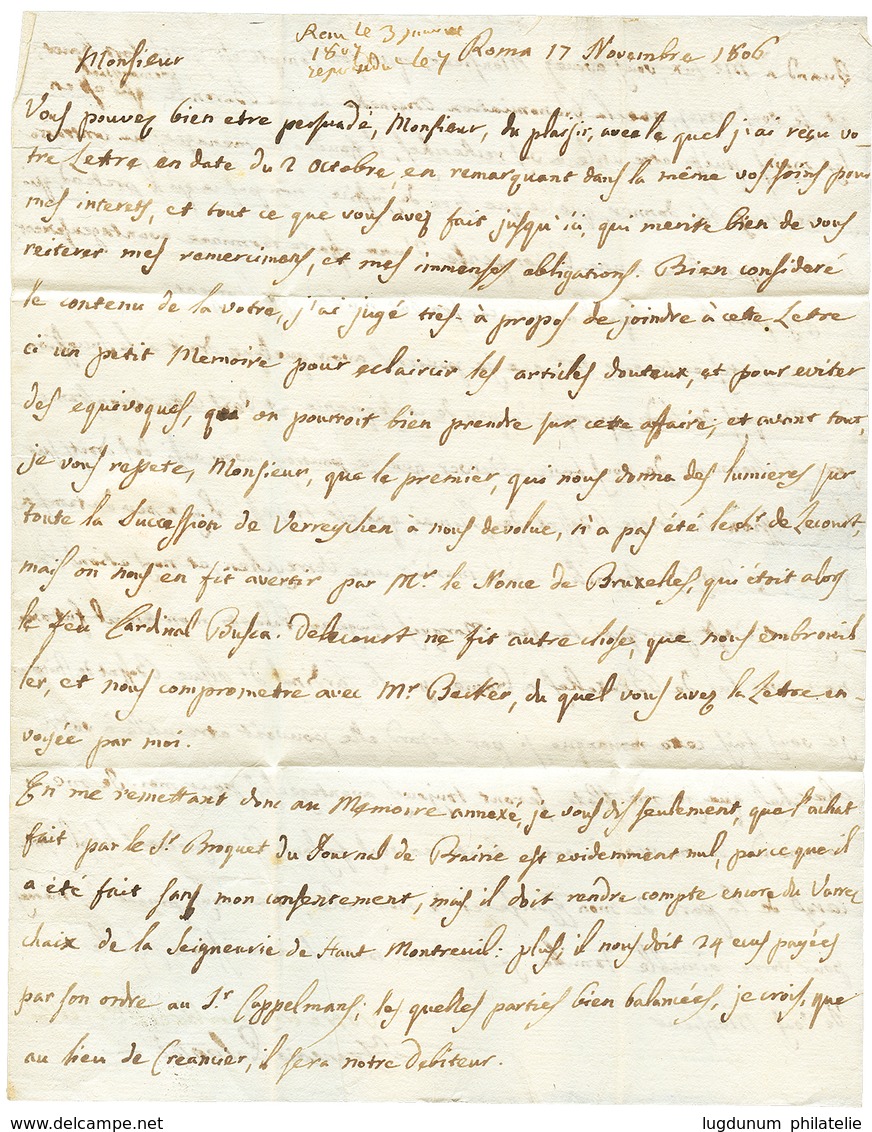 Recu le 3 janvier
1807
repondu le 7
Roma 17 Novembre 1806
Monsieur
Vous pouvez bien etre persuadé, Monsieur, du plaisir, avec le quel j'ai reçu vo-
tre Lettre en date du 2 Octobre, en remarquant dans la même vos soins pour
mes interets, et tout ce que vous avez fait jusqu'ici, qui merite bien de vous
reiterer mes remercimens, et mes immenses obligations. Bien consideré
le contenu de la votre, j'ai jugé tres-à propos de joindre à cette Lettre
ci un petit Memoire pour eclaircir les articles douteux, et pour eviter
des equivoques, qu'on pourroit bien prendre sur cette affaire; et avant tout,
je vous repete, Monsieur, que le premier, qui nous donna des lumieres sur
toute la Succession de Verreychen à nous devolue, n'a pas été le Sr. de Lecourt,
mais on nous en fit avertir par Mr. le Nonce de Bruxelles, qui étoit alors
le feu Cardinal Busca. Delecourt ne fit autre chose, que nous embrouil-
ler, et nous comprometre avec Mr. Becker, du quel vous avez la Lettre en-
voyée par moi.
En me remettant donc au Memoire annexé, je vous dis seulement, que l'achat
fait par le Sr. Broquet du Journal de Brairie est evidemment nul, parceque il
a été fait sans mon consentement, mais il doit rendre compte encore du Varre
chaix de la Seigneurie de Haut Montreuil: plus, il nous doit 24 ecus payées
par son ordre au Sr. Cappelmans; les quelles parties bien balancées, je crois, que
au lieu de Creancier, il sera notre Debiteur.
www.delcampe.net
lugdunum philatelie